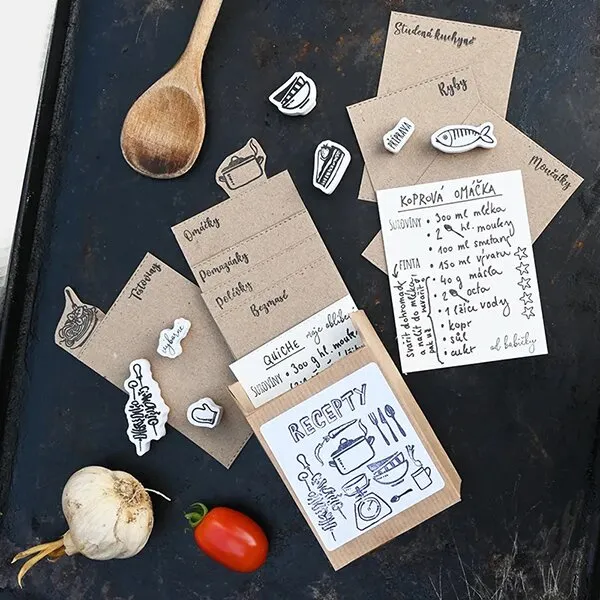 Studená kuchyně
Ryby
PŘÍPRAVA
Moučníky
KOPROVÁ OMÁČKA
SUROVINY
• 300 ml mléka
• 2 hl. mouky
• 100 ml smetany
FINTA
• 150 ml vývaru
• 40 g másla
• 2 octa
• 1 lžíce vody
• kopr
• sůl
• cukr
svařit dohromady
a nalít do mléka,
pak už nevařit!
od babičky
Omáčky
Pomazánky
Polévky
Bezmasé
Těstoviny
výborné
QUICHE moje oblíbené
SUROVINY
• 300 g hl. mouky
RECEPTY